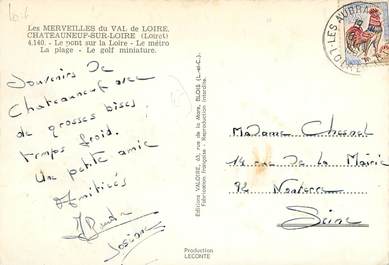 Les MERVEILLES du VAL de LOIRE
CHATEAUNEUF-SUR-LOIRE (Loiret)
4.140. - Le pont sur la Loire - Le métro
La plage - Le golf miniature.
Souvenirs de
Chateauneuf avec
de grosses bises
temps froid.
Une petite amie
Amitiés
Josiane
Editions VALOIRE, 63, rue de la Mare, BLOIS (L.-et-C.)
Fabrication Française - Reproduction interdite.
LES AUBRAIS
Madame Chesnel
14 rue de la Mairie
92 Nanterre
Seine
Production
LECONTE